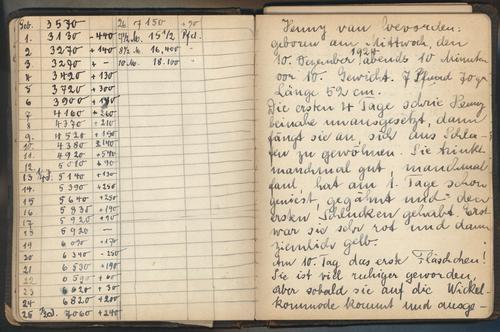 Geb. 3570
1. 3130 -440
2. 3270 +140
3. 3290 + -
4. 3420 +130
5. 3720 +300
6. 3900
7. 4160 +260
8. 4370 +210
9. 4520 +150
10. 4380 -140
11. 4920 +540
12. 5010 + 90
13 5140 +130
14. 5390 +250
15. 5640 +250
16 5830 +190
17 5920 +90
18 5920 -
19 6090 +170
20 6340 -250
21 6530 +190
22 6590 +60
23 6620 +30
24 6820 +200
25 7060 +240
26. 7150 +90
15 1/2 Pfd.
16,400
10. M. 18.100
Penny van Wevorden:
geboren am Mittwoch, den
10. Dezember 1924 abends 10 Minuten
vor 10. Gewicht. 7 Pfund 70 gr
Länge 52 cm.
Die ersten 4 Tage schrie Penny
beinahe unausgesetzt, dann
fängt sie an, sich ans Schla-
fen zu gewöhnen. Sie trinkt
manchmal gut, manchmal
faul, hat am 1. Tage schon
geniest, gegähnt und den
ersten Schlucken gehabt. Erst
war sie sehr rot und dann
ziemlich gelb.
Am 10. Tag das erste Fläschchen!
Sie ist viel ruhiger geworden,
aber sobald sie auf die Wickel-
kommode kommt und ausge-